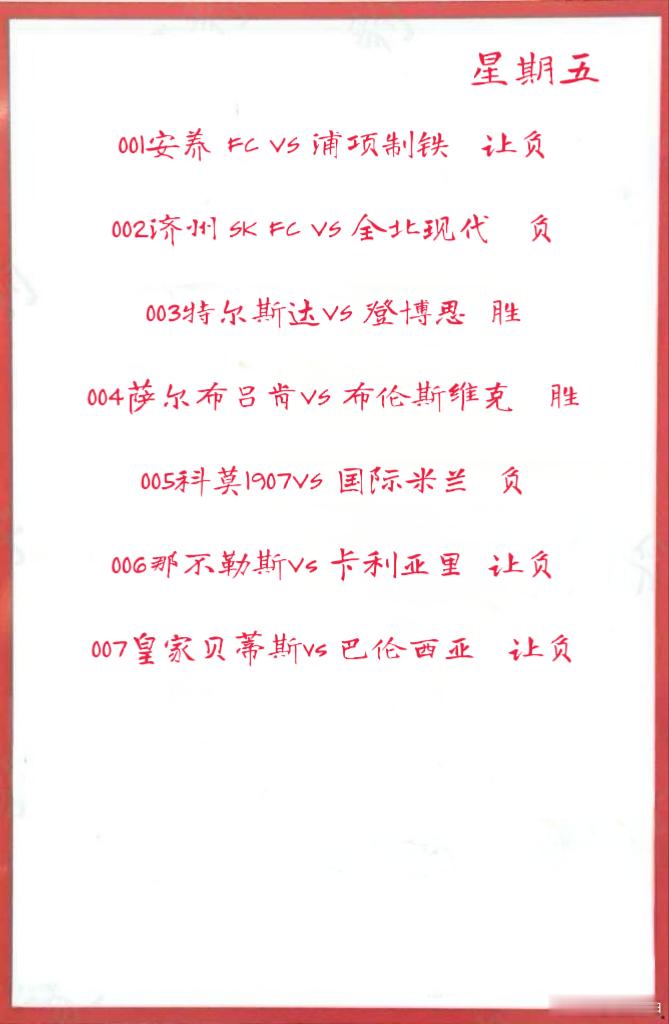 星期五
001安养 FC VS 浦项制铁 让负
002济州 SK FC VS 全北现代 负
003特尔斯达VS 登博思 胜
004萨尔布吕肯VS 布伦斯维克 胜
005科莫1907VS 国际米兰 负
006那不勒斯VS 卡利亚里 让负
007皇家贝蒂斯VS 巴伦西亚 让负